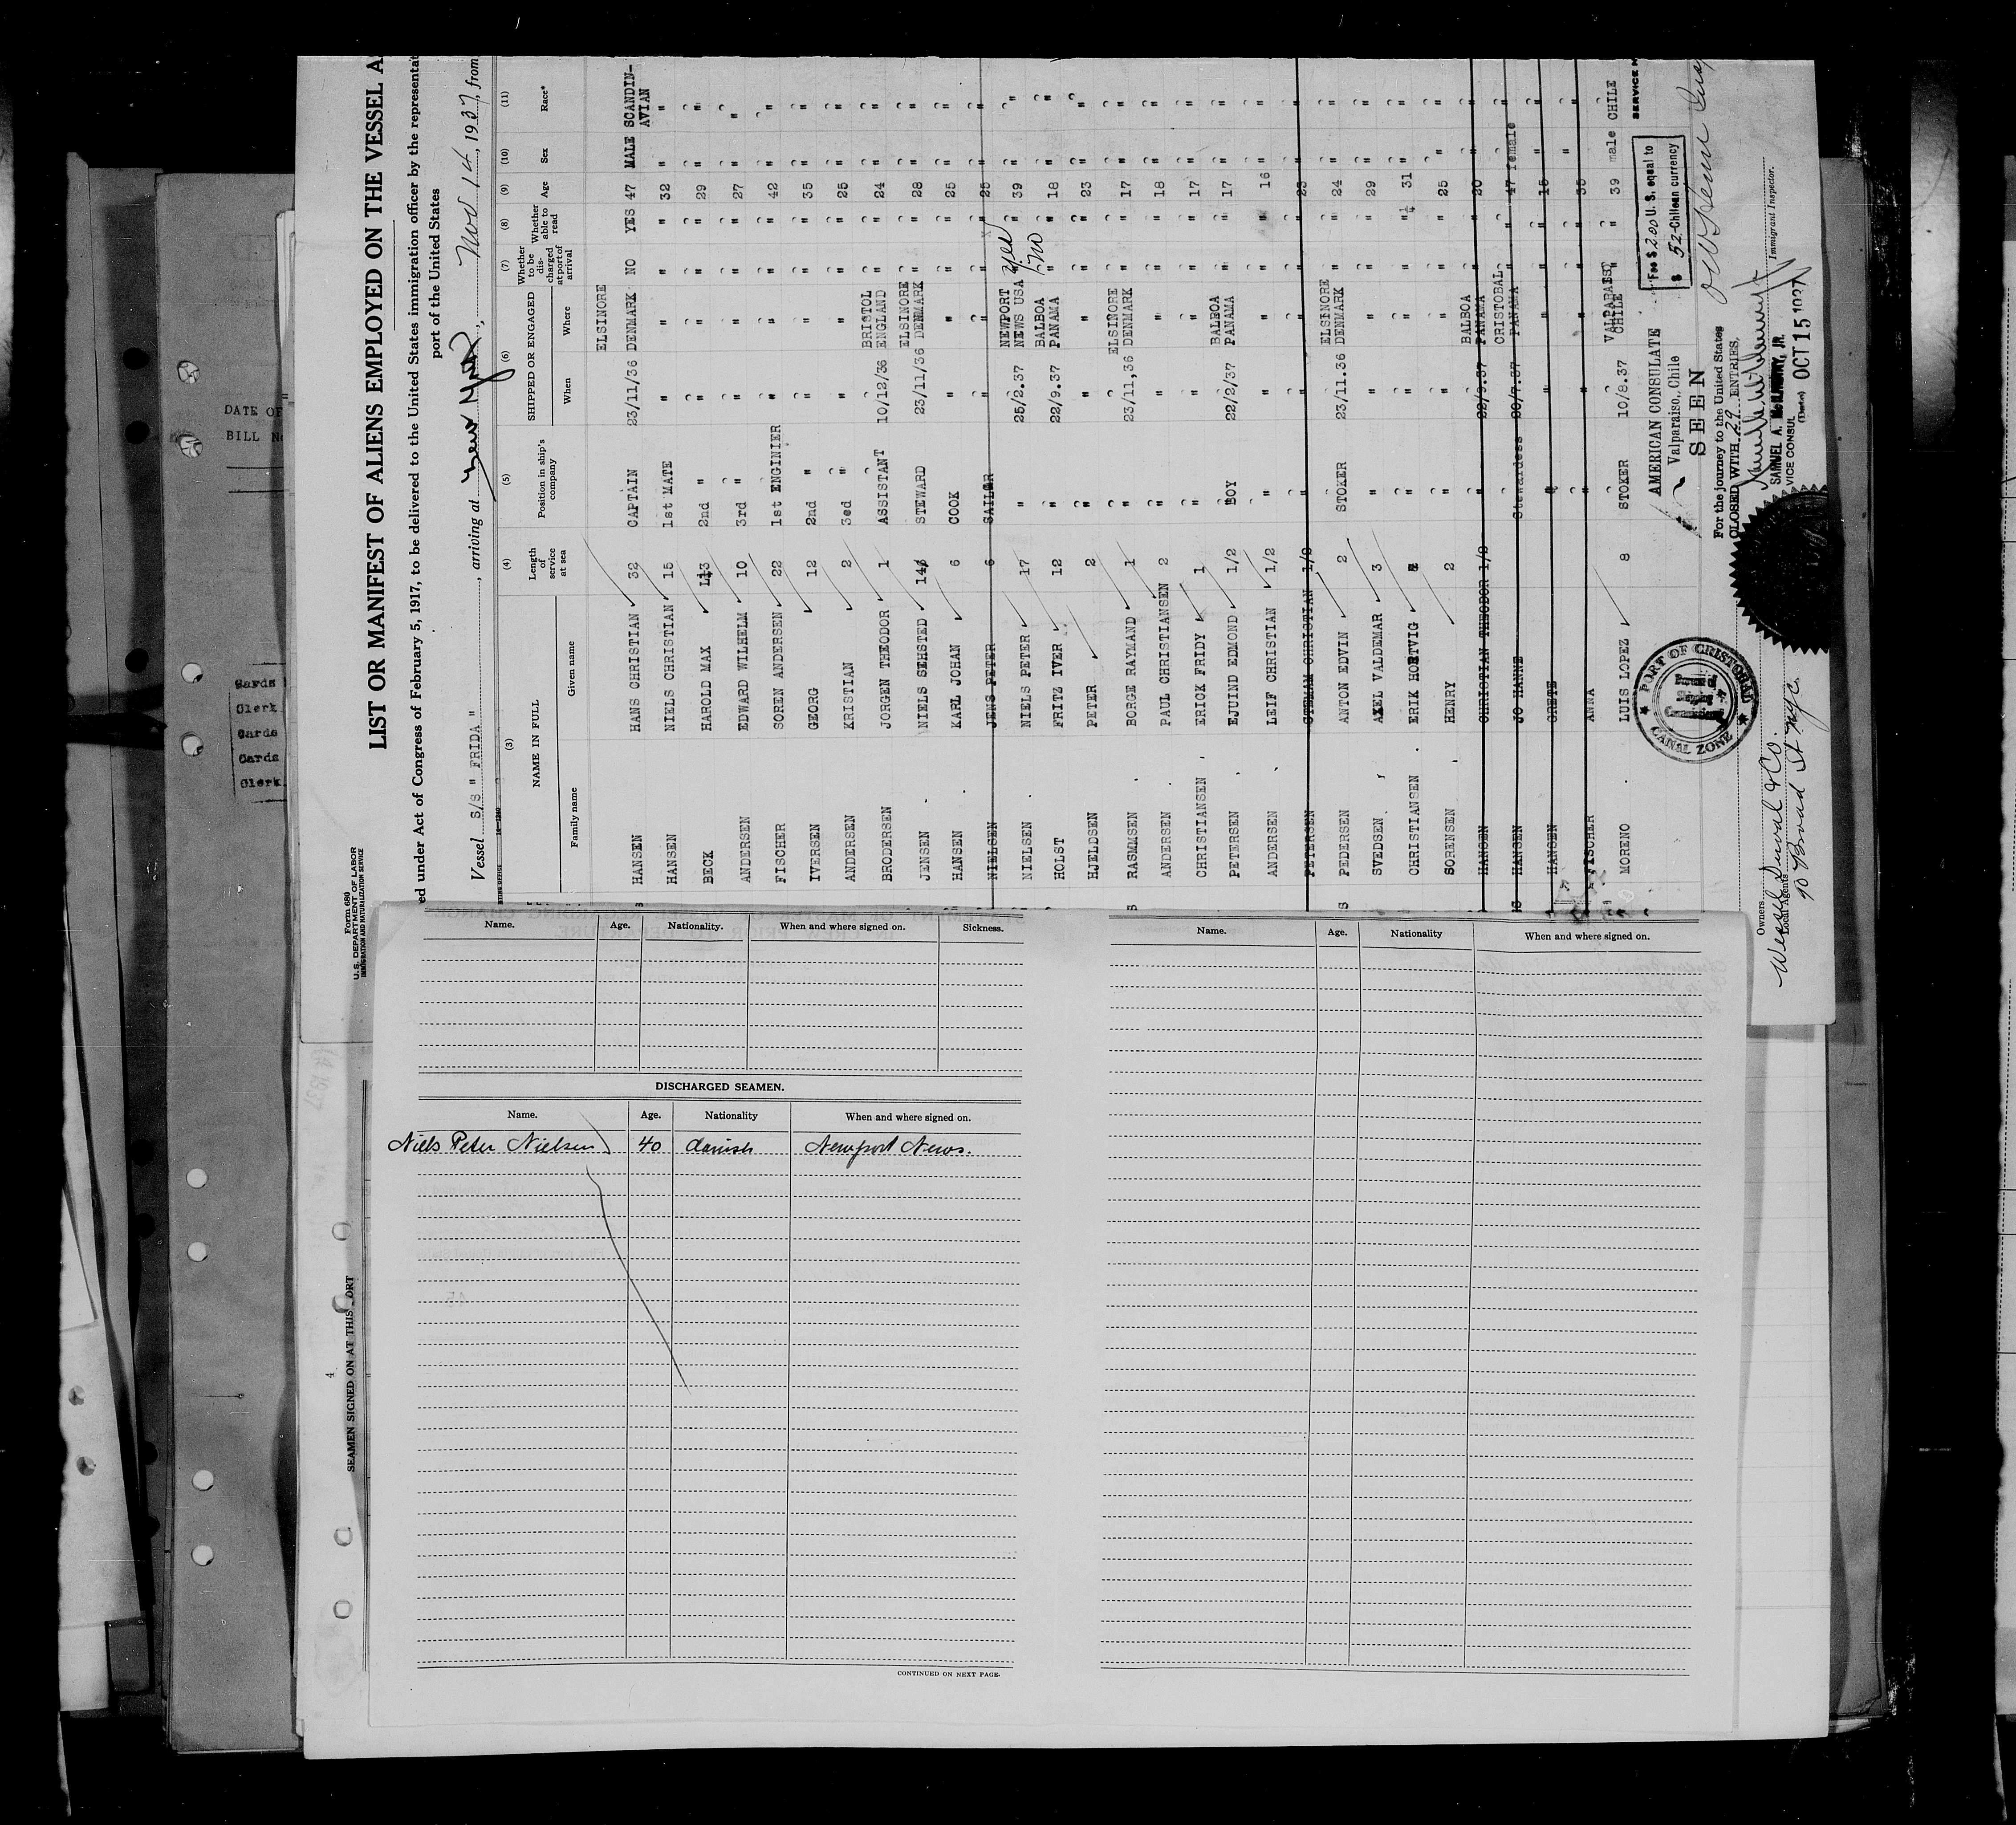 Form 680
U. S. DEPARTMENT OF LABOR
IMMIGRATION AND NATURALIZATION SERVICE
LIST OR MANIFEST OF ALIENS EMPLOYED ON THE VESSEL A
ed under Act of Congress of February 5, 1917, to be delivered to the United States immigration officer by the representat
port of the United States
Vessel S/S " FRIDA ", arriving at New York, Nov 14, 1937, from
(3) (4) (5) (6) (7) (8) (9) (10) (11)
NAME IN FULL Length of service at sea Position in ship's company SHIPPED OR ENGAGED Whether to be discharged at port of arrival Whether able to read Age Sex Race*
Family name Given name When Where
ELSINORE
HANSEN HANS CHRISTIAN 32 CAPTAIN 23/11/36 DENMARK NO YES 47 MALE SCANDIN-
AVIAN
HANSEN NIELS CHRISTIAN 15 1st MATE " " " " 32 " "
BECK HAROLD MAX 13 2nd " " " " " 29 " "
ANDERSEN EDWARD WILHELM 10 3rd " " " " " 27 " "
FISCHER SOREN ANDERSEN 22 1st ENGINIER " " " " 42 " "
IVERSEN GEORG 12 2nd " " " " " 35 " "
ANDERSEN KRISTIAN 2 3ed " " " " " 25 " "
BRISTOL
BRODERSEN JORGEN THEODOR 1 ASSISTANT 10/12/36 ENGLAND " " 24 " "
ELSINORE
JENSEN NIELS SEHSTED 14 STEWARD 23/11/36 DENMARK " " 28 " "
HANSEN KARL JOHAN 6 COOK " " " " 25 " "
NIELSEN JENS PETER 6 SAILOR " " " " 25 " "
NEWPORT
NIELSEN NIELS PETER 17 " 25/2.37 NEWS USA yes " 39 " "
BALBOA
HOLST FRITZ IVER 12 " 22/9.37 PANAMA no " 18 " "
HJELDSEN PETER 2 " " " " " 23 " "
ELSINORE
RASMMSEN BORGE RAYMAND 1 " 23/11,36 DENMARK " " 17 " "
ANDERSEN PAUL CHRISTIANSEN 2 " " " " " 18 " "
CHRISTIANSEN ERICK FRIDY 1 " " " " " 17 " "
BALBOA
PETERSEN EJUND EDMOND 1/2 BOY 22/2/37 PANAMA " " 17 " "
ANDERSEN LEIF CHRISTIAN 1/2 " " " " " 16 " "
PETERSEN STEMAN CHRISTIAN 1/2 " " " " " 23 " "
ELSINORE
PEDERSEN ANTON EDVIN 2 STOKER 23/11.36 DENMARK " " 24 " "
SVEDSEN AXEL VALDEMAR 3 " " " " " 29 " "
CHRISTIANSEN ERIK HORTVIG " " " " " 31 " "
SORENSEN HENRY 2 " " " " " 25 " "
BALBOA
HANSEN CHRISTIAN THEODOR 1/2 " 22/9.37 PANAMA " " 20 " "
CRISTOBAL
HANSEN JO HANNE Stewardess 20/7.37 PANAMA " " 47 female "
HANSEN GRETE " " " " " 15 " "
FISCHER ANNA " " " " " 35 " "
VALPARAISO
MORENO LUIS LOPEZ 8 STOKER 10/8.37 CHILE " " 39 male CHILE
PORT OF CRISTOBAL
CANAL ZONE
AMERICAN CONSULATE
Valparaiso, Chile
SEEN
For the journey to the United States
CLOSED WITH 29 ENTRIES.
SAMUEL A. McILHENNY, JR.
VICE CONSUL
(Date) OCT 15 1937
Fee $ 2.00 U. S. equal to
$ 52 Chilean currency
Immigrant Inspector.
Owners
Local Agents
Wessel Duval & Co.
10 Broad St NYC.
DATE OF
BILL No
Cards
Clerk
Cards
Cards
Clerk
4
SEAMEN SIGNED ON AT THIS PORT
Name. Age. Nationality. When and where signed on. Sickness.
DISCHARGED SEAMEN.
Name. Age. Nationality When and where signed on.
Niels Peter Nielsen 40 danish Newport News.
CONTINUED ON NEXT PAGE.
Name. Age. Nationality When and where signed on.